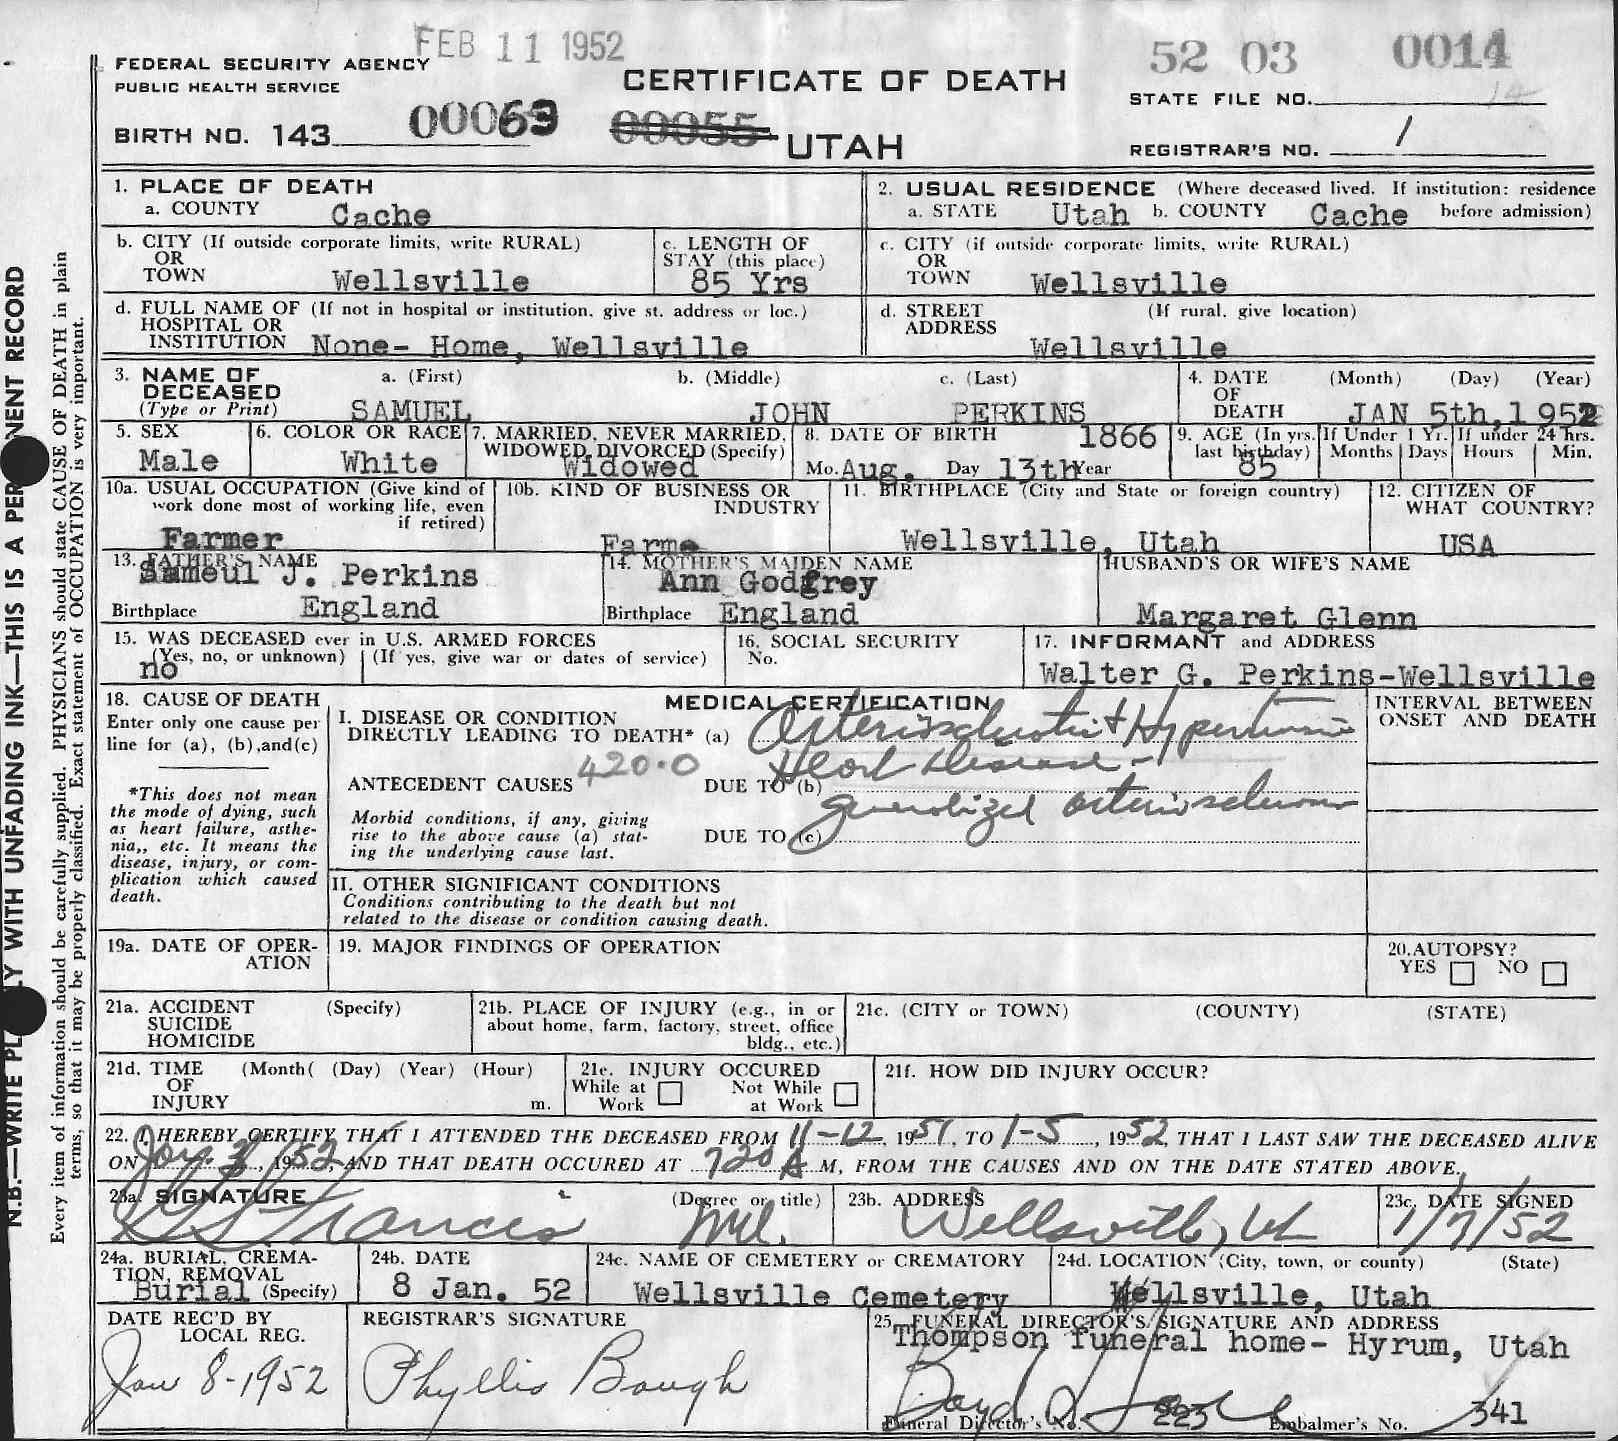 FEB 11 1952
52 03 0014
FEDERAL SECURITY AGENCY
PUBLIC HEALTH SERVICE
CERTIFICATE OF DEATH
STATE FILE NO. 14
BIRTH NO. 143 00063 00055 UTAH
REGISTRAR'S NO. 1
N.B.—WRITE PL Y WITH UNFADING INK—THIS IS A PER NENT RECORD
Every item of information should be carefully supplied. PHYSICIANS should state CAUSE OF DEATH in plain
terms, so that it may be properly classified. Exact statement of OCCUPATION is very important.
1. PLACE OF DEATH
a. COUNTY Cache
2. USUAL RESIDENCE (Where deceased lived. If institution: residence
a. STATE Utah b. COUNTY Cache before admission)
b. CITY (If outside corporate limits, write RURAL)
OR
TOWN Wellsville
c. LENGTH OF
STAY (this place)
85 Yrs
c. CITY (if outside corporate limits, write RURAL)
OR
TOWN Wellsville
d. FULL NAME OF (If not in hospital or institution, give st. address or loc.)
HOSPITAL OR
INSTITUTION None- Home, Wellsville
d. STREET (If rural, give location)
ADDRESS
Wellsville
3. NAME OF DECEASED a. (First) b. (Middle) c. (Last)
(Type or Print) SAMUEL JOHN PERKINS
4. DATE (Month) (Day) (Year)
OF
DEATH JAN 5th, 1952
5. SEX
Male
6. COLOR OR RACE
White
7. MARRIED, NEVER MARRIED,
WIDOWED, DIVORCED (Specify)
Widowed
8. DATE OF BIRTH 1866
Mo. Aug. Day 13th Year
9. AGE (In yrs.
last birthday)
85
If Under 1 Yr.
Months Days
If under 24 Hrs.
Hours Min.
10a. USUAL OCCUPATION (Give kind of
work done most of working life, even
if retired)
Farmer
10b. KIND OF BUSINESS OR
INDUSTRY
Farme
11. BIRTHPLACE (City and State or foreign country)
Wellsville, Utah
12. CITIZEN OF
WHAT COUNTRY?
USA
13. FATHER'S NAME
Sameul J. Perkins
Birthplace England
14. MOTHER'S MAIDEN NAME
Ann Godfrey
Birthplace England
HUSBAND'S OR WIFE'S NAME
Margaret Glenn
15. WAS DECEASED ever in U.S. ARMED FORCES
(Yes, no, or unknown) (If yes, give war or dates of service)
no
16. SOCIAL SECURITY
No.
17. INFORMANT and ADDRESS
Walter G. Perkins-Wellsville
18. CAUSE OF DEATH
Enter only one cause per
line for (a), (b),and(c)
*This does not mean
the mode of dying, such
as heart failure, asthe-
nia,, etc. It means the
disease, injury, or com-
plication which caused
death.
MEDICAL CERTIFICATION
I. DISEASE OR CONDITION
DIRECTLY LEADING TO DEATH* (a) Arteriosclerotic & Hypertensive
Heart Disease -
ANTECEDENT CAUSES 420.0 DUE TO (b)
generalized arteriosclerosis
Morbid conditions, if any, giving
rise to the above cause (a) stat-
ing the underlying cause last.
DUE TO (c)
INTERVAL BETWEEN
ONSET AND DEATH
II. OTHER SIGNIFICANT CONDITIONS
Conditions contributing to the death but not
related to the disease or condition causing death.
19a. DATE OF OPER-
ATION
19. MAJOR FINDINGS OF OPERATION
20. AUTOPSY?
YES NO
21a. ACCIDENT (Specify)
SUICIDE
HOMICIDE
21b. PLACE OF INJURY (e.g., in or
about home, farm, factory, street, office
bldg., etc.)
21c. (CITY or TOWN) (COUNTY) (STATE)
21d. TIME (Month( (Day) (Year) (Hour)
OF
INJURY m.
21e. INJURY OCCURED
While at Work Not While at Work
21f. HOW DID INJURY OCCUR?
22. I HEREBY CERTIFY THAT I ATTENDED THE DECEASED FROM 11-12, 1951, TO 1-5, 1952, THAT I LAST SAW THE DECEASED ALIVE
ON Jan. 3, 1952, AND THAT DEATH OCCURED AT 720 A M, FROM THE CAUSES AND ON THE DATE STATED ABOVE.
23a. SIGNATURE (Degree or title)
Francis M.D.
23b. ADDRESS
Wellsville, Ut
23c. DATE SIGNED
1/7/52
24a. BURIAL, CREMA-
TION, REMOVAL
Burial (Specify)
24b. DATE
8 Jan. 52
24c. NAME OF CEMETERY or CREMATORY
Wellsville Cemetery
24d. LOCATION (City, town, or county) (State)
Wellsville, Utah
DATE REC'D BY
LOCAL REG.
Jan 8-1952
REGISTRAR'S SIGNATURE
Phyllis Baugh
25. FUNERAL DIRECTOR'S SIGNATURE AND ADDRESS
Thompson funeral home- Hyrum, Utah
Boyd
Funeral Director's No. 223 Embalmer's No. 341